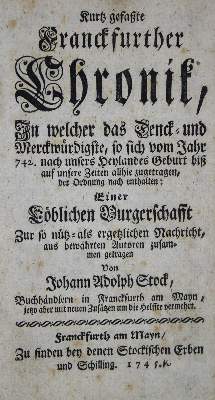 Kurtz gefaßte
Franckfurther
Chronik,
In welcher das Denck- und
Merckwürdigste, so sich vom Jahr
742. nach unsers Heylandes Geburt biß
auf unsere Zeiten allhie zugetragen,
der Ordnung nach enthalten;
Einer
Löblichen Burgerschafft
Zur so nütz- als ergetzlichen Nachricht,
aus bewährten Autoren zusam-
men getragen
Von
Johann Adolph Stock,
Buchhändlern in Franckfurth am Mayn,
jetzo aber mit neuen Zusätzen um die Helffte vermehrt.
Franckfurth am Mayn,
Zu finden bey denen Stockischen Erben
und Schilling. 1745.